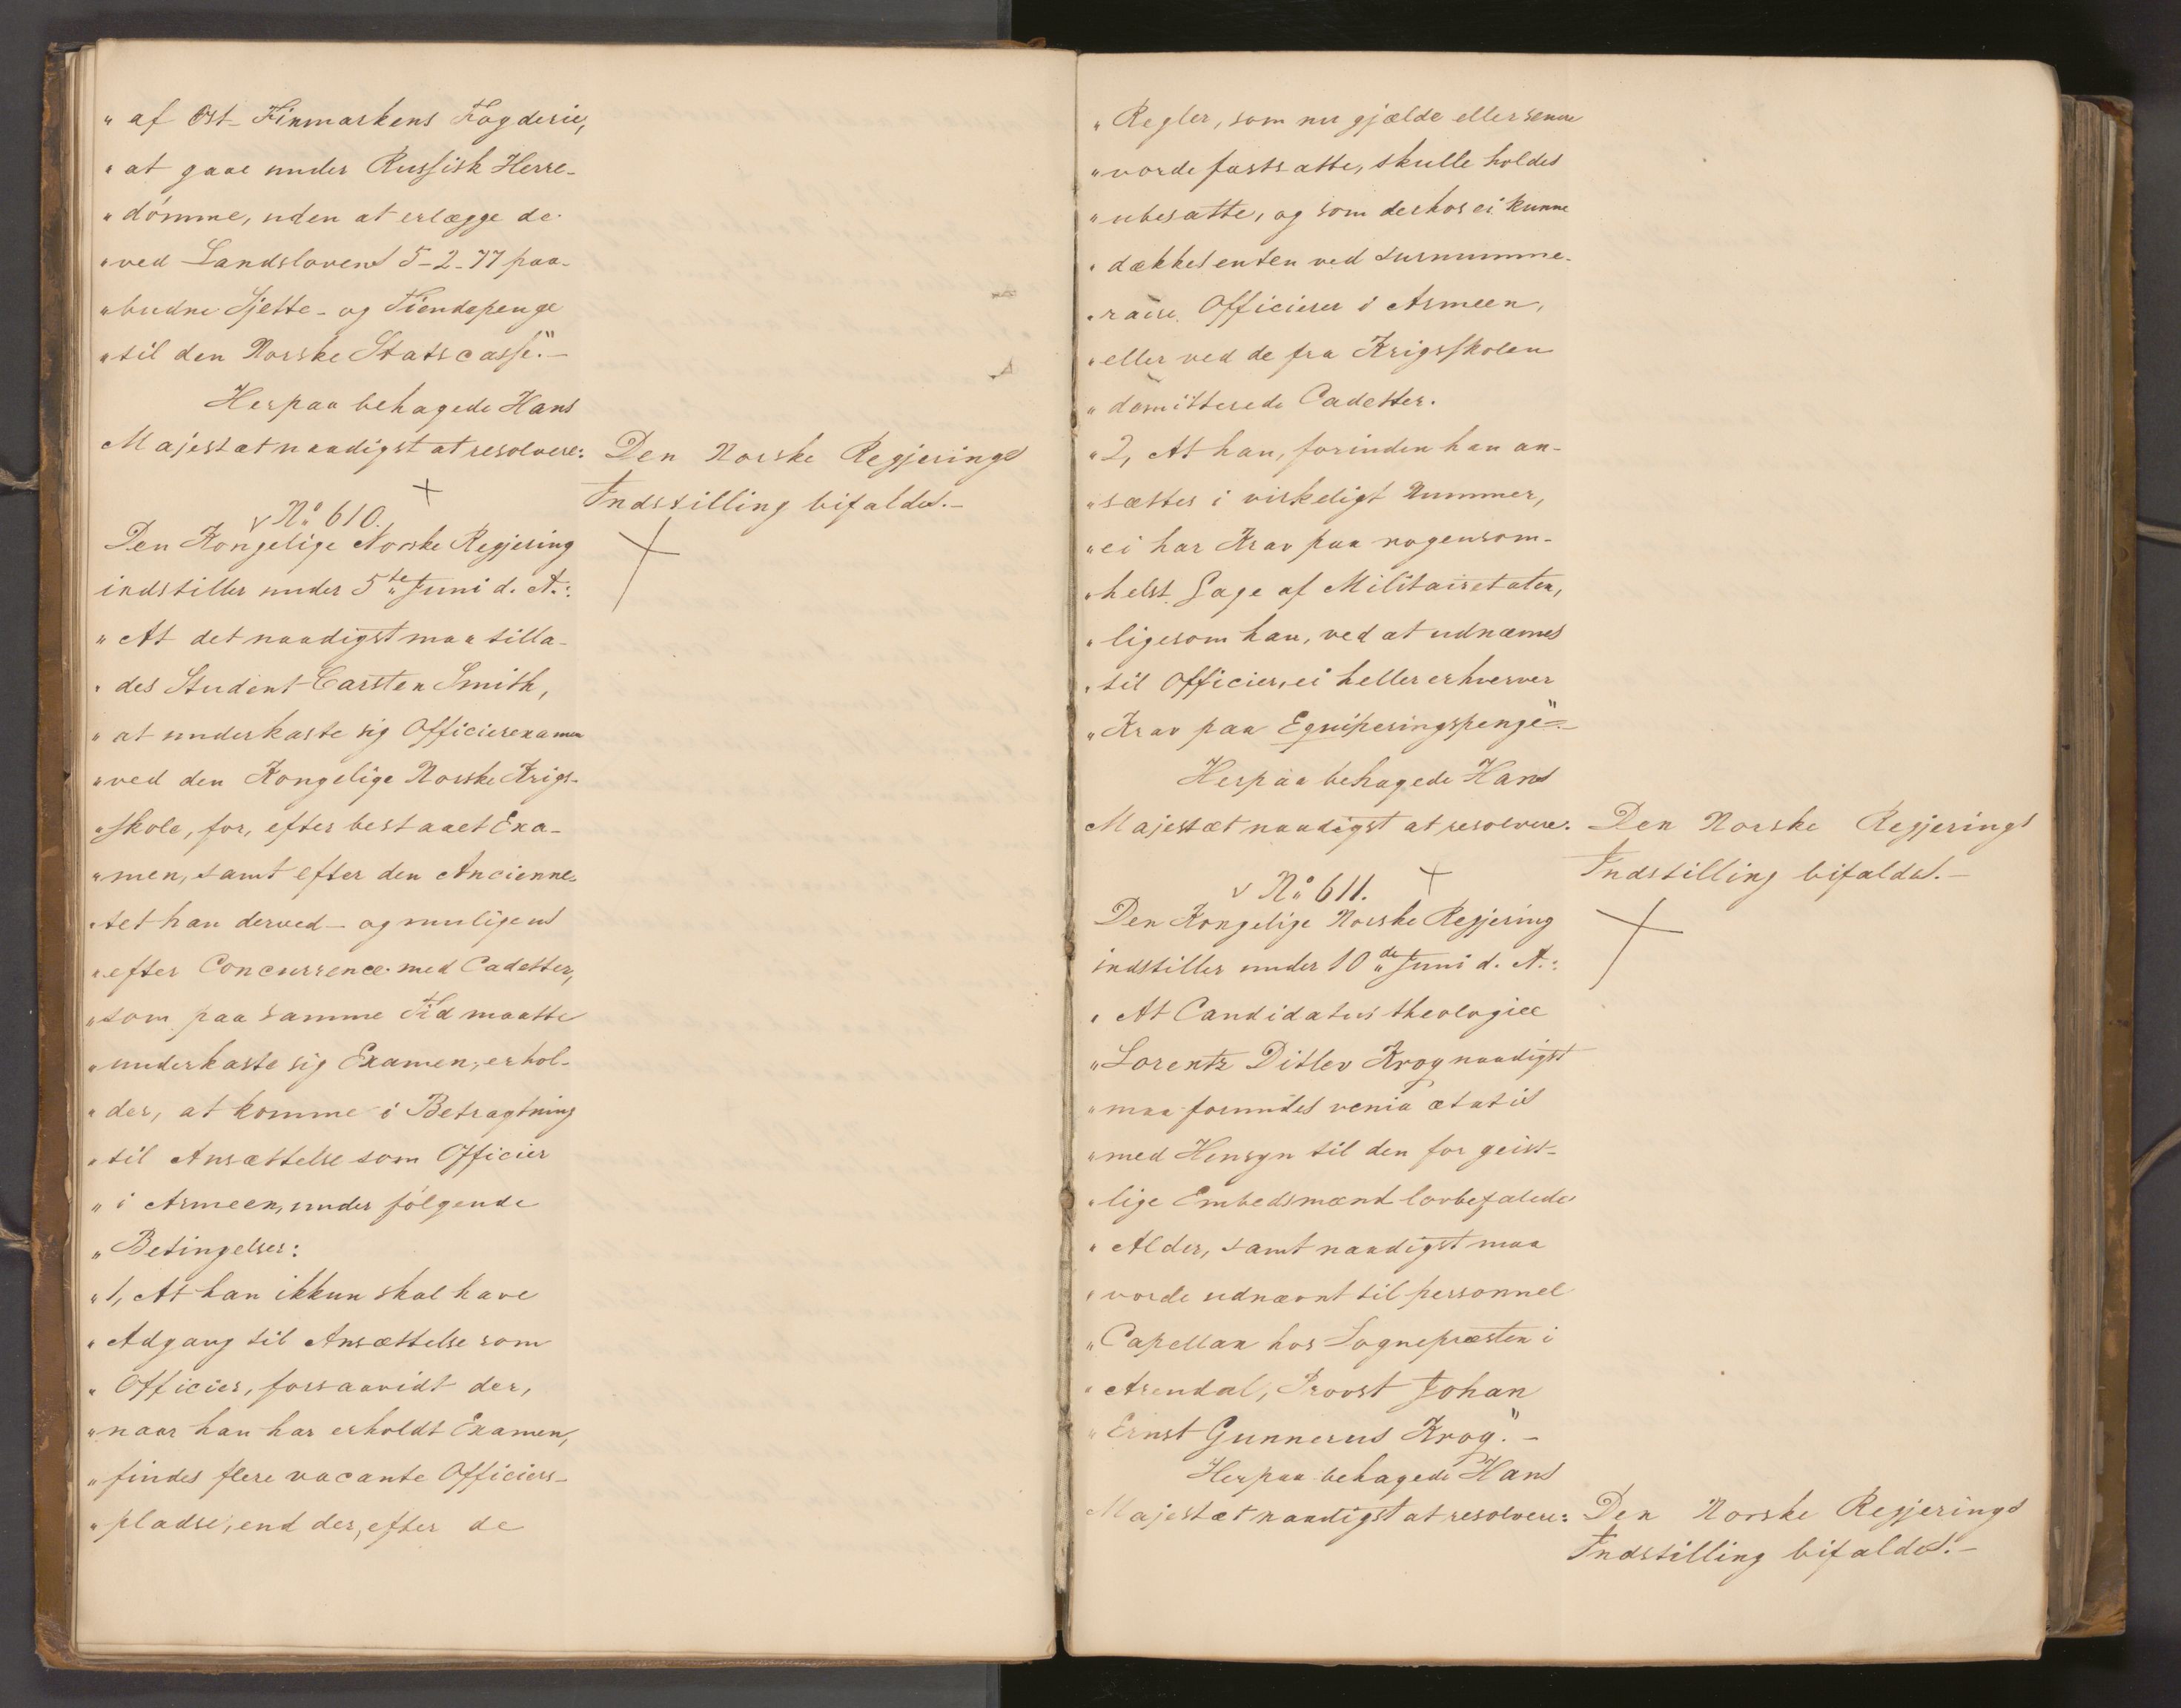 „ af Ost-Finmarkens Fogderie,
„ at gaae under Russisk Herre-
„ dómme, uden at erlægge de
„ ved Landslovens 5-2-77 paa-
„ budne Sjette- og Tiendepenge
„ til den Norske Statscasse."-
Herpaa behagede Hans
Majestæt naadigst at resolvere:
Den Norske Regjerings
Indstilling bifaldes.-
No 610.
Den Kongelige Norske Regjering
indstiller under 5te Juni d. A.:
„ At det naadigst maa tilla-
„ des Student Carsten Smith,
„ at underkaste sig Officierexamen
„ ved den Kongelige Norske Krigs-
„ skole, for, efter bestaaet Exa-
„ men, samt efter den Ancienne-
„ tet han derved - og muligens
„ efter Concurrence med Cadetter,
„ som paa samme Tid maatte
„ underkaste sig Examen, erhol-
„ der, at komme i Betragtning
„ til Ansættelse som Officier
„ i Armeen, under fólgende
„ Betingelser:
„ 1, At han ikkun skal have
„ Adgang til Ansættelse som
„ Officier, forsaavidt der,
„ naar han har erholdt Examen,
„ findes flere vacante Officiers-
„ pladse, end der, efter de
„ Regler, som nu gjælde eller senere
„ vorde fastsatte, skulle holdes
„ ubesatte, og som derhos ei kunne
„ dækkes enten ved surnumme-
„ raire Officierer i Armeen,
„ eller ved de fra Krigsskolen
„ demitterede Cadetter.
„ 2, At han, forinden han an-
„ sættes i virkeligt Nummer,
„ ei har Krav paa nogensom-
„ helst Gage af Militairetaten,
„ ligesom han, ved at udnævnes
„ til Officier, ei heller erhverver
„ Krav paa Equiperingspenge".-
Herpaa behagede Hans
Majestæt naadigst at resolvere:
Den Norske Regjerings
Indstilling bifaldes.-
No 611.
Den Kongelige Norske Regjering
indstiller under 10de Juni d. A.:
„ At Candidatus theologiæ
„ Lorentz Ditlev Krog naadigst
„ maa forundes venia ætatis
„ med Hensyn til den for geist-
„ lige Embedsmænd lovbefalede
„ Alder, samt naadigst maa
„ vorde udnævnt til personnel
„ Capellan hos Sognepræsten i
„ Arendal, Provst Johan
„ Ernst Gunnerus Krog."-
Herpaa behagede Hans
Majestæt naadigst at resolvere:
Den Norske Regjerings
Indstilling bifaldes.-